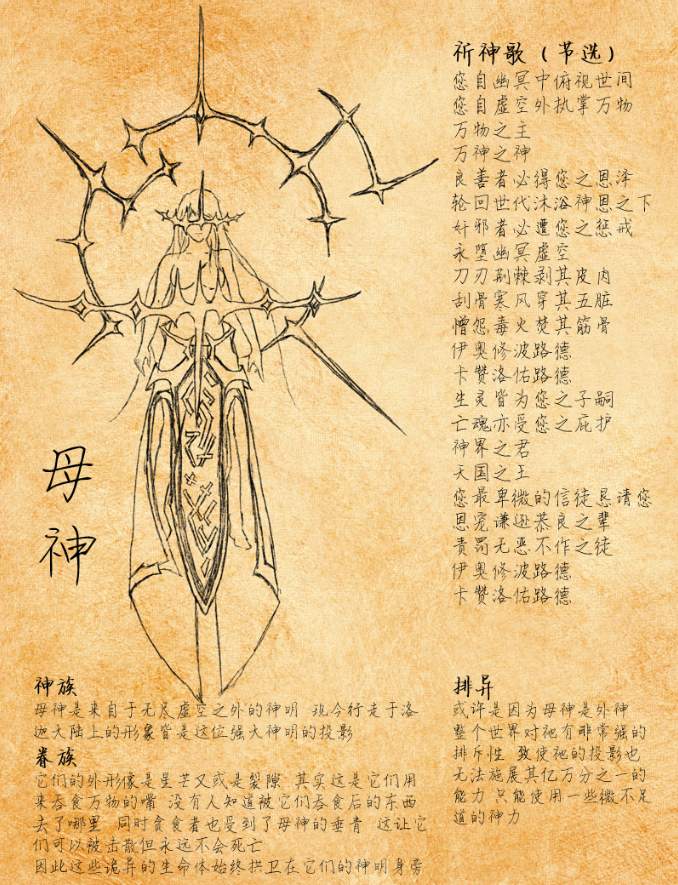 祈神歌（节选）
您自幽冥中俯视世间
您自虚空外执掌万物
万物之主
万神之神
良善者必得您之恩泽
轮回世代沐浴神恩之下
奸邪者必遭您之惩戒
永堕幽冥虚空
刀刃荆棘剥其皮肉
刮骨寒风穿其五脏
憎怨毒火焚其筋骨
伊奥修波路德
卡赞洛佑路德
生灵皆为您之子嗣
亡魂亦受您之庇护
神界之君
天国之王
您最卑微的信徒恳请您
恩宠谦逊恭良之辈
责罚无恶不作之徒
伊奥修波路德
卡赞洛佑路德
母神
神族
母神是来自于无尽虚空之外的神明 现今行走于洛
迦大陆上的形象皆是这位强大神明的投影
眷族
它们的外形像是星芒又或是裂隙 其实这是它们用
来吞食万物的嘴 没有人知道被它们吞食后的东西
去了哪里 同时贪食者也受到了母神的垂青 这让它
们可以被击散但永远不会死亡
因此这些诡异的生命体始终拱卫在它们的神明身旁
排异
或许是因为母神是外神
整个世界对祂有非常强的
排斥性 致使祂的投影也
无法施展其亿万分之一的
能力 只能使用一些微不足
道的神力